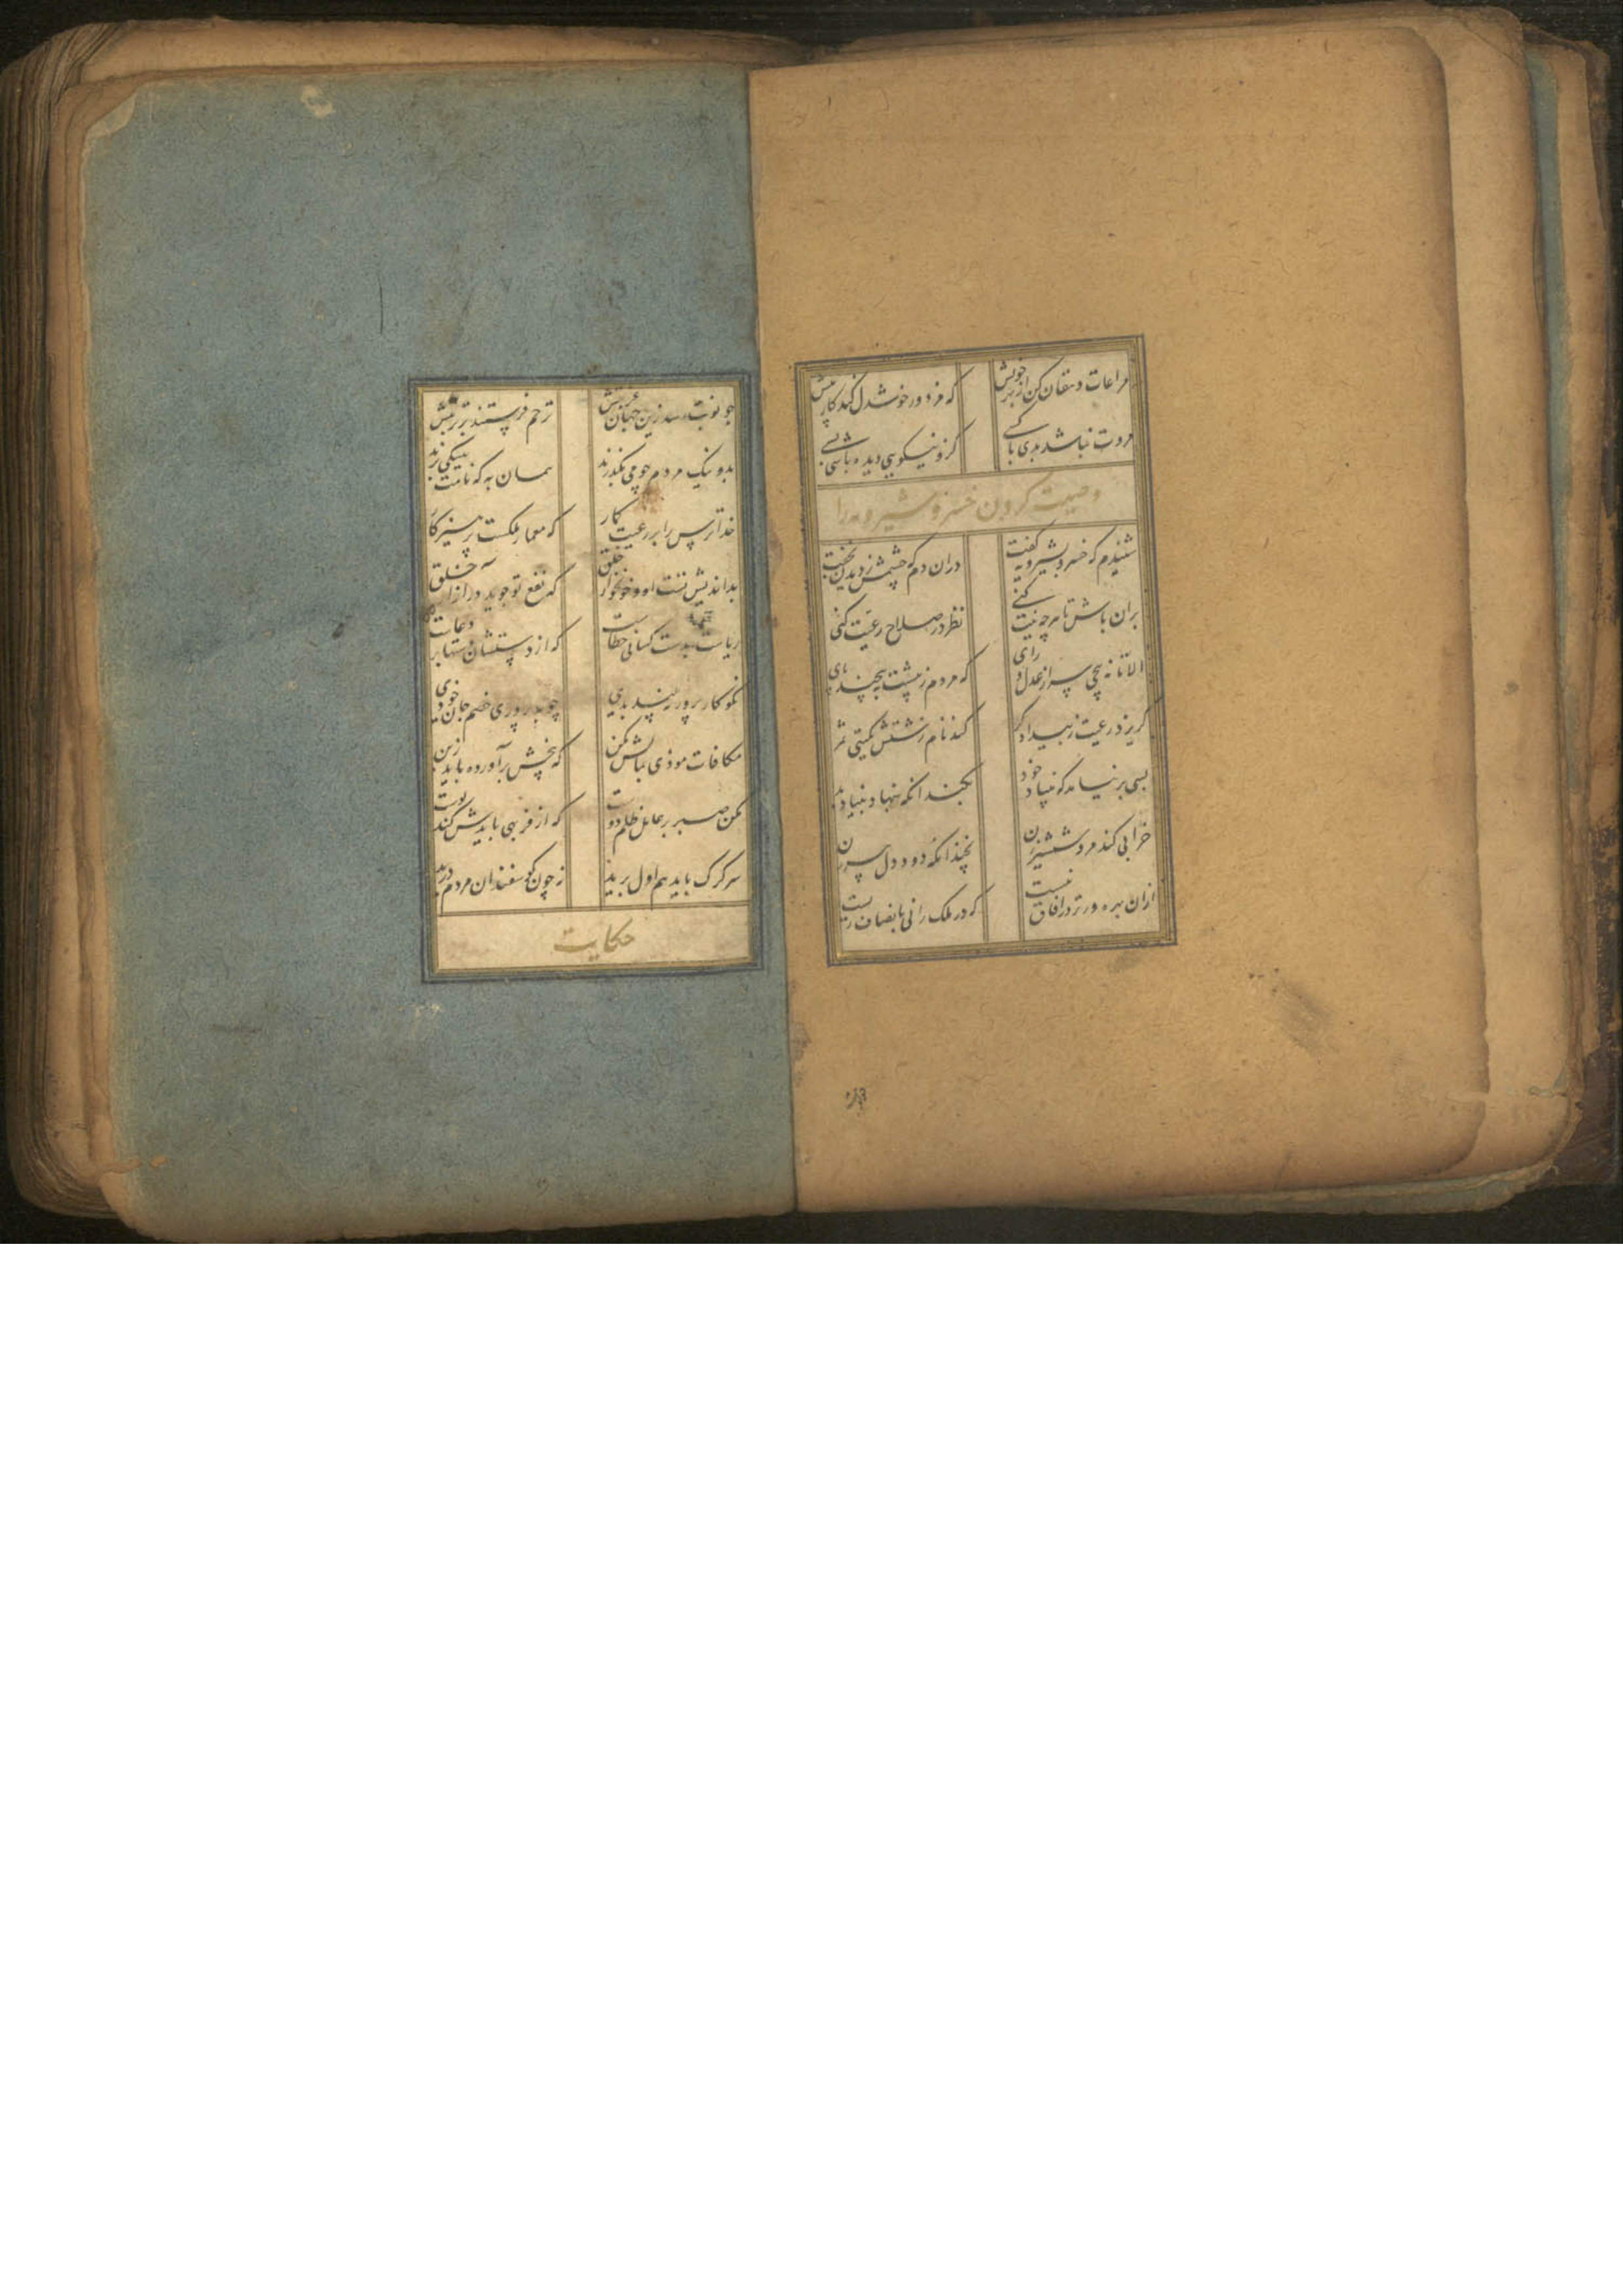 مراعات دهقان کن از بهر خویش که مزدور خوشدل کند کار بیش
مروت نباشد بدی با کسی کزو نیکویی دیده باشی بسی
وصیت کردن خسرو شیرویه را
شنیدم که خسرو بشیرویه گفت دران دم که چشمش ز دیدن بخفت
بران باش تا هر چه نیت کنی نظر در صلاح رعیت کنی
الا تا نه پیچی سر از عدل و رای که مردم ز پیشت بپیچند پای
گریزد رعیت ز بیدادگر کند نام زشتش بگیتی سمر
بسی بر نیاید که بنیاد خود بکند آنکه بنهاد بنیاد بد
خرابی کند مرد شمشیر زن نچندانکه دود دل پیرزن
ازان بهره ورتر در آفاق نیست که در ملک رانی بانصاف زیست
چو نوبت رسد زین جهان غربتش ترحم فرستند بر تربتش
بد و نیک مردم چو می بگذرند همان به که نامت بنیکی برند
خداترس را بر رعیت گمار که معمار ملکست پرهیزگار
بداندیش تست او و خونخوار خلق که نفع تو جوید در آزار خلق
ریاست بدست کسانی خطاست که از دستشان دستها بر دعاست
نکوکار پرور نبیند بدی چو بد پروری خصم جان خودی
مکافات موذی بمالش مکن که بیخش برآورده باید ز بن
مکن صبر بر عامل ظلم دوست که از فربهی بایدش کند پوست
سر گرگ باید هم اول برید نه چون گوسفندان مردم درید
حکایت